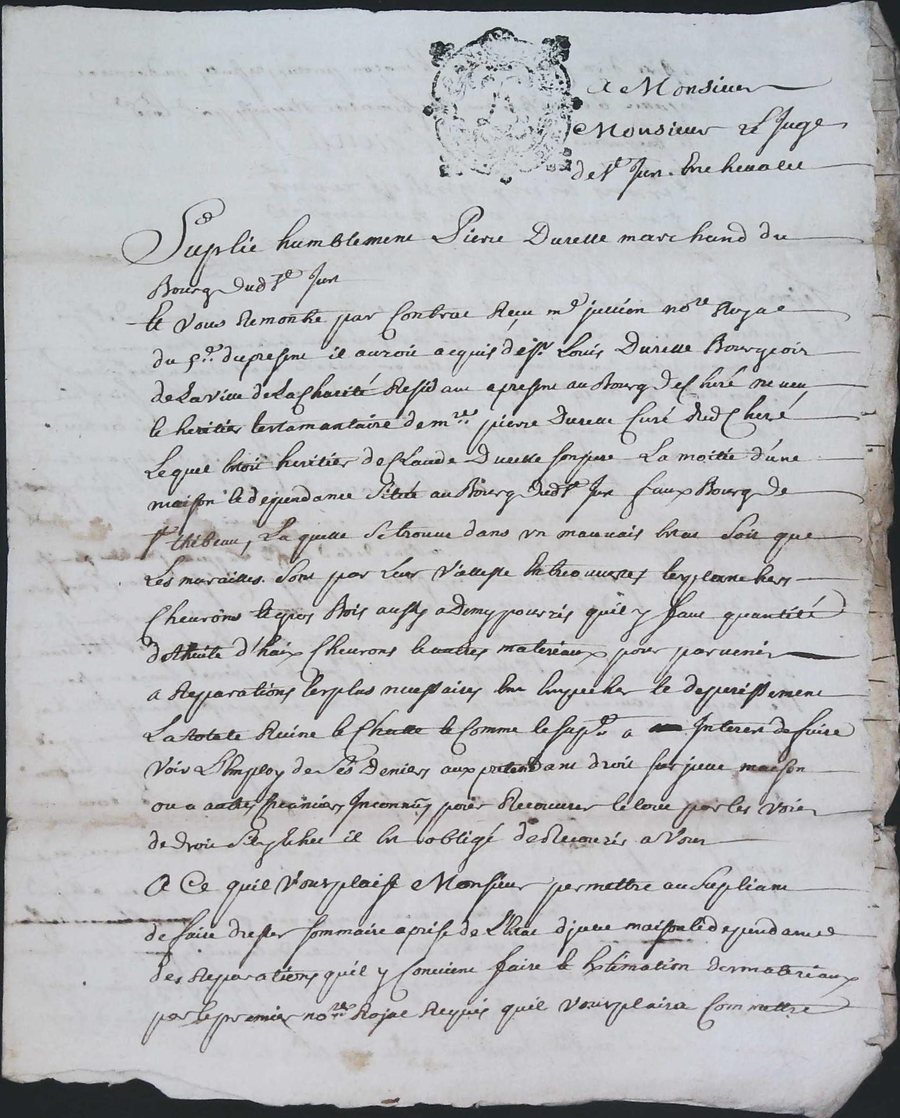 A Monsieur
Monsieur Le Juge
de st Jun en chevalee
Suplie humblement Pierre Durelle marchand du
Bourg dudt st Jun
Et vous Remontre par Contrat Reçu me jullien nore Royae
du 5me du presene il auroit acquis de sr Louis Durelle Bourgeois
de La ville de La Charité Residant a presene au Bourg de Cheré neveu
le heritier testamantaire de mre pierre Durelle Curé dud Cheré
Lequel etoit heritier de CLaude Durelle son pere La moitié d'une
maison et dependance Sitée au Bourg dudt st Jun faux Bourg de
st thibeau, La quelle se trouve dans un mauvais etat Soit que
Les murailles Sont par Leur viellesse entreouvertes les planchers
Cheurons et gros Bois aussy a Demy pourris qu'il y faut quantité
de thuile d'haix Cheurons et autres materiaux pour parvenir
a Reparations les plus necessaires en empecher le deperissement
La totale Ruine et Chutte et Comme le supt a Interest de faire
Voir L'employ de Ses Deniers aux pretendans droit sur jcelle maison
ou a autres creanciers Inconnus pour Recouvrer le tout par les voies
de droit il est obligé de Recourir a Vous
A Ce quil Vous plaise Monsieur permettre au Supliant
de faire dresser sommaire aprise de L'Etat d'jcelle maison et dependances
des Reparations qu'il y Convient faire et Estimation des materiaux
par le premier nore Rojal Requis quil Vous plaira Commettre